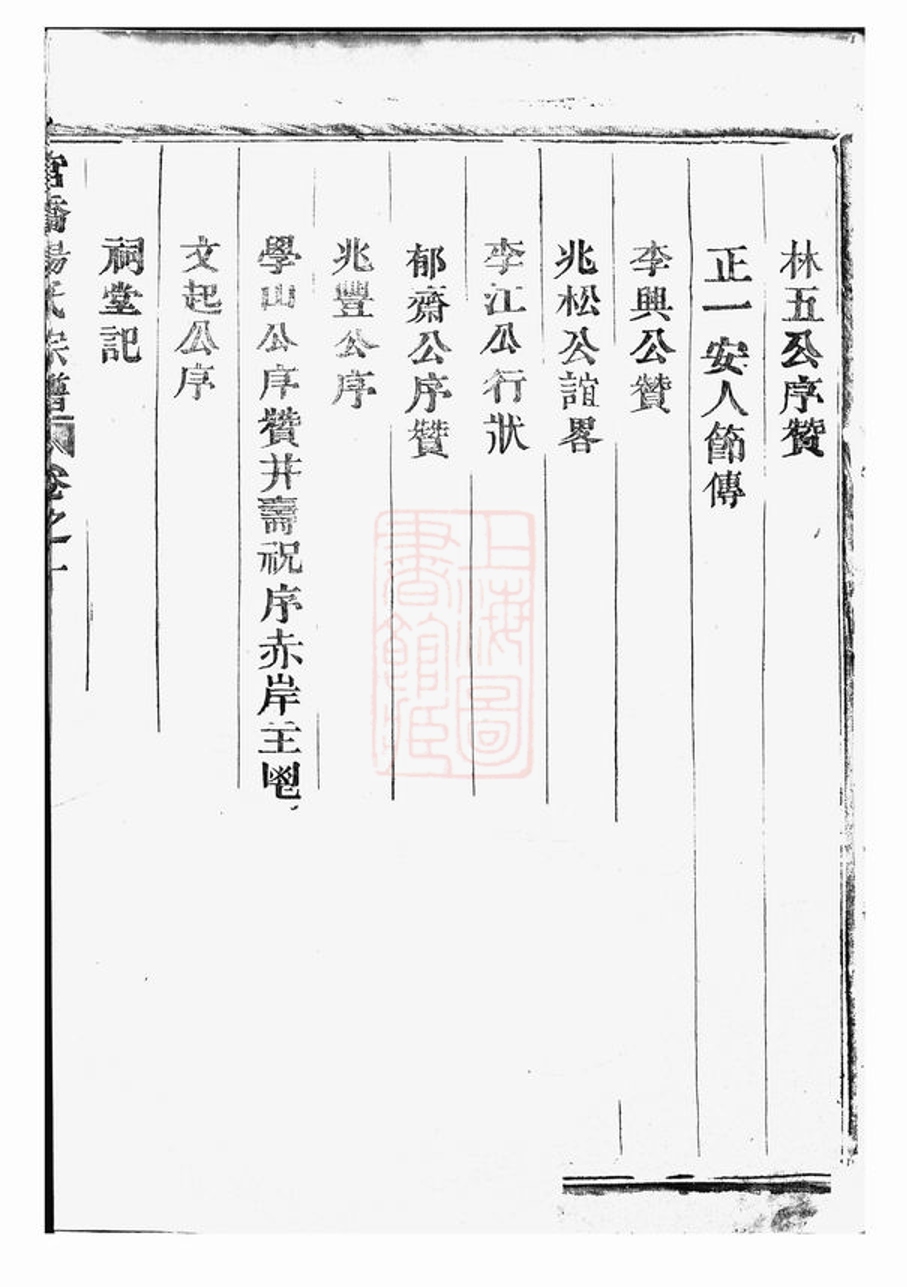 林五公序贊
正一安人節傳
李興公贊
兆松公誼畧
李江公行狀
郁齋公序贊
兆豐公序
學山公序贊并壽祝序赤岸主鬯
文起公序
祠堂記
宗譜 卷之十
上海圖書館藏